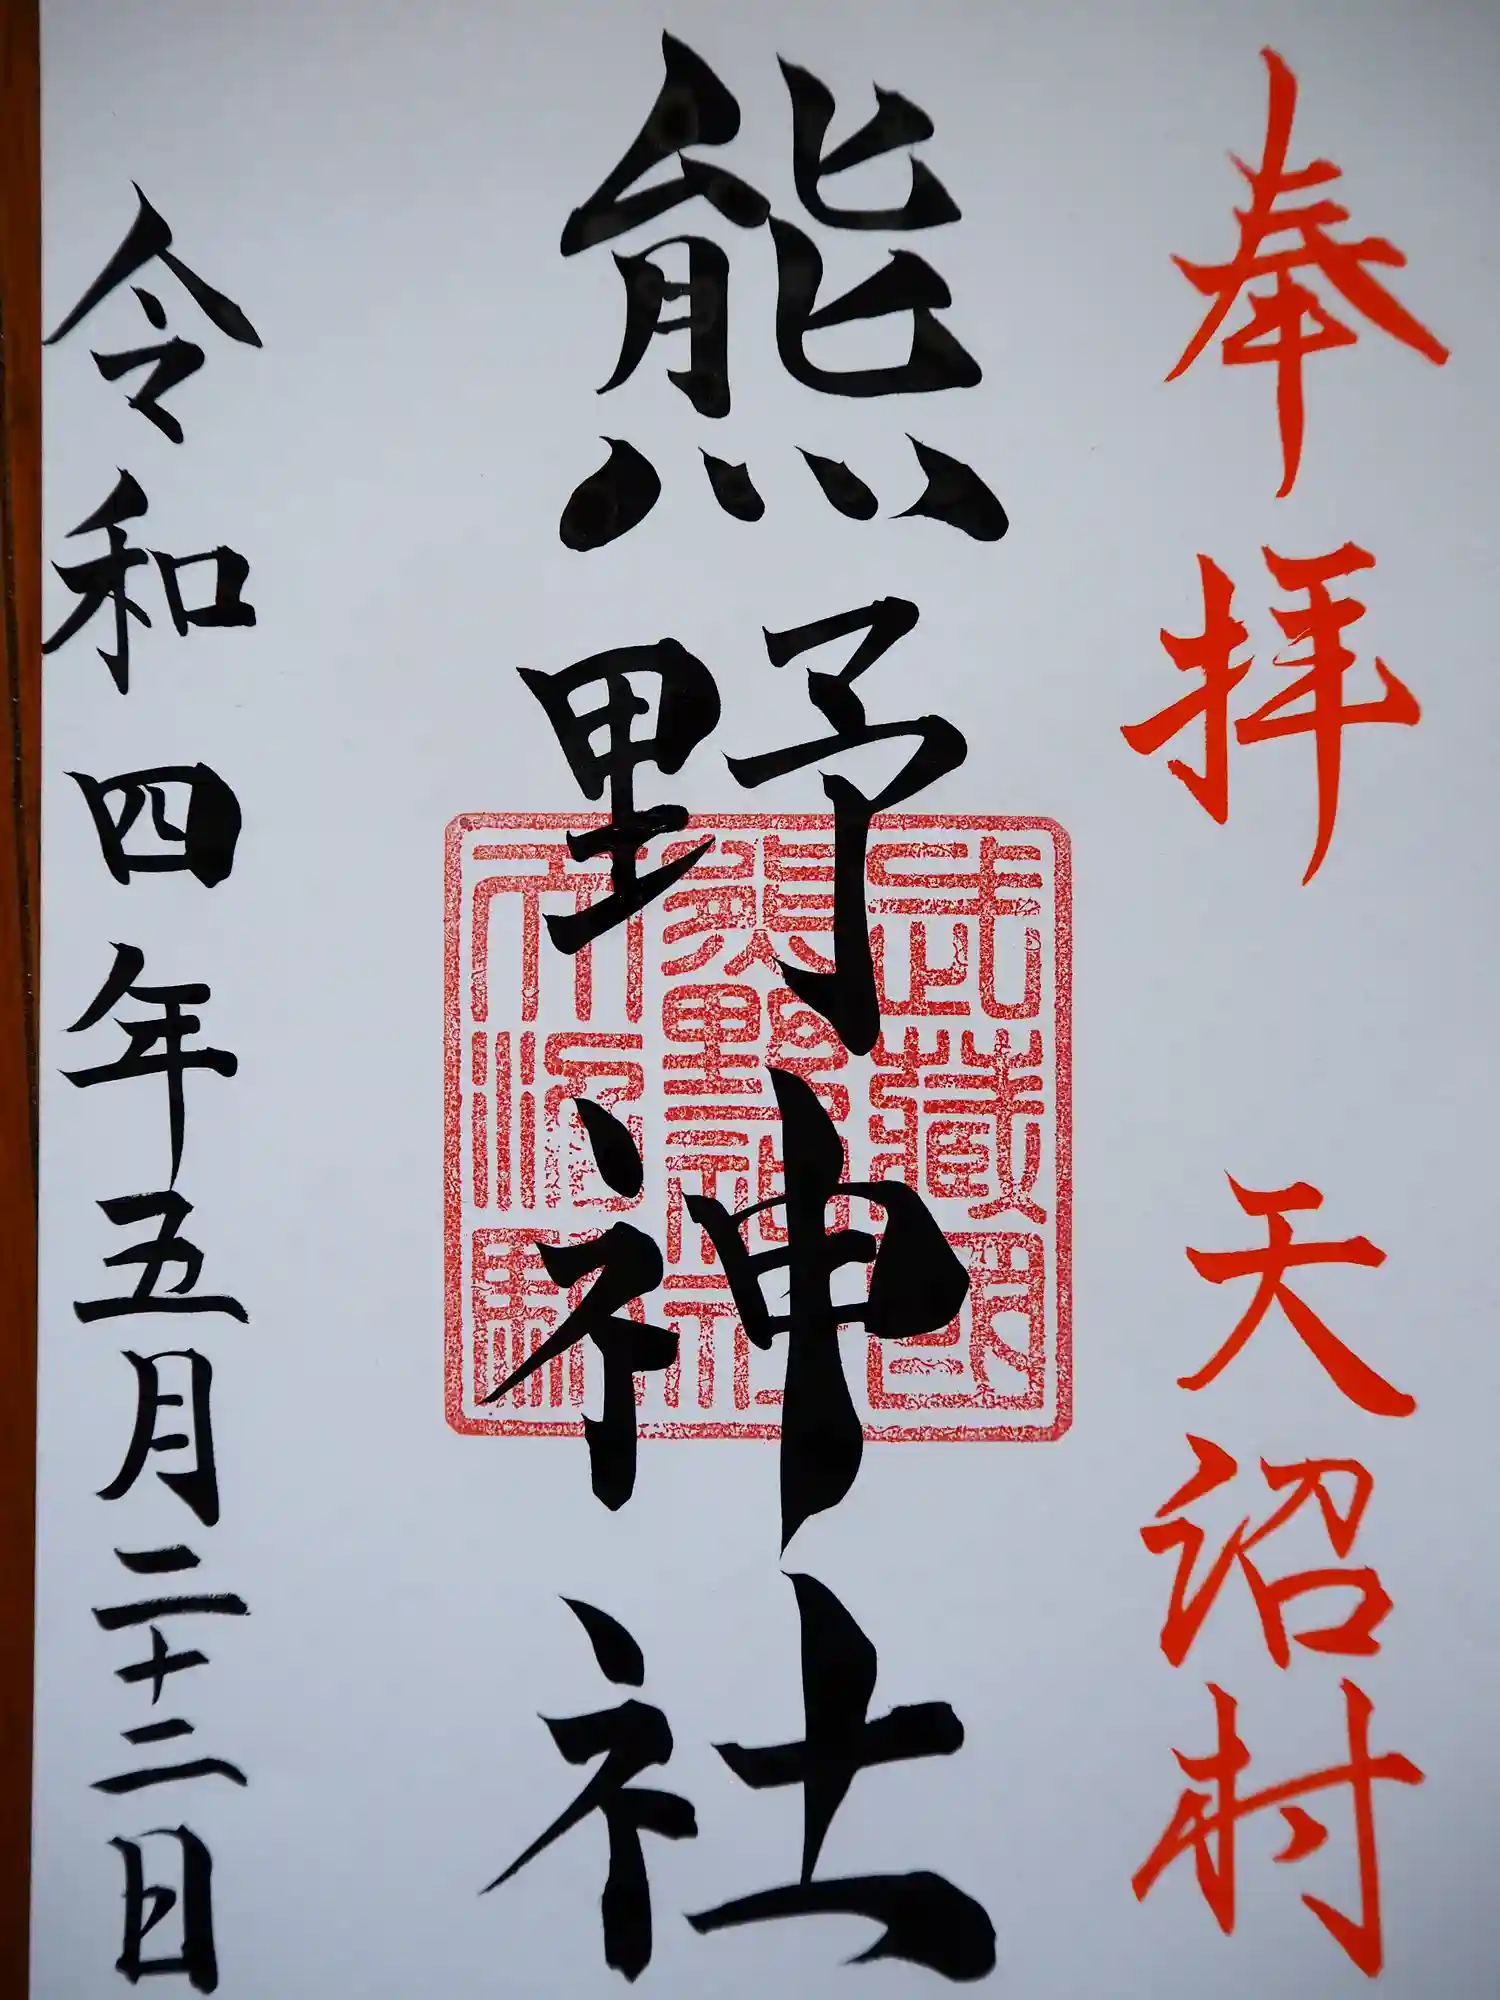 奉拝 天沼村
熊野神社
武蔵國
熊野神社
令和四年五月二十二日